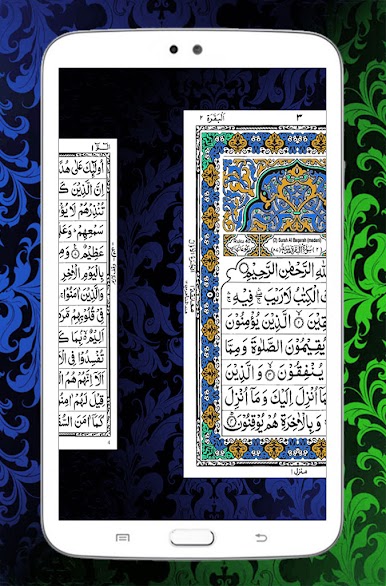 البقرة ٢
٣
(2) Surah Al Baqarah (madani)
اللّٰهِ الرَّحْمٰنِ الرَّحِيْمِ
الْكِتٰبُ لَا رَيْبَ فِيْهِ
قِيْنَ الَّذِيْنَ يُؤْمِنُوْنَ
يُقِيْمُوْنَ الصَّلٰوةَ وَمِمَّا
يُنْفِقُوْنَ وَالَّذِيْنَ
مَاۤ اُنْزِلَ اِلَيْكَ وَمَاۤ اُنْزِلَ
وَبِالْاٰخِرَةِ هُمْ يُوْقِنُوْنَ
منزل ١
الٓمّ ١
اُولٰٓئِكَ عَلٰى هُدًى
اِنَّ الَّذِيْنَ كَ
تُنْذِرْهُمْ لَا يُؤْ
سَمْعِهِمْ وَعَلٰٓى
عَظِيْمٌ
بِالْيَوْمِ الْاٰخِرِ
وَالَّذِيْنَ اٰمَنُوْا
فِيْ قُلُوْبِهِمْ مَّرَضٌ
اَلِيْمٌ بِمَا كَ
تُفْسِدُوْا فِى الْا
اَلَاۤ اِنَّهُمْ هُمُ الْ
قِيْلَ لَهُمْ اٰمِنُ
كَمَاۤ اٰمَنَ السُّفَ